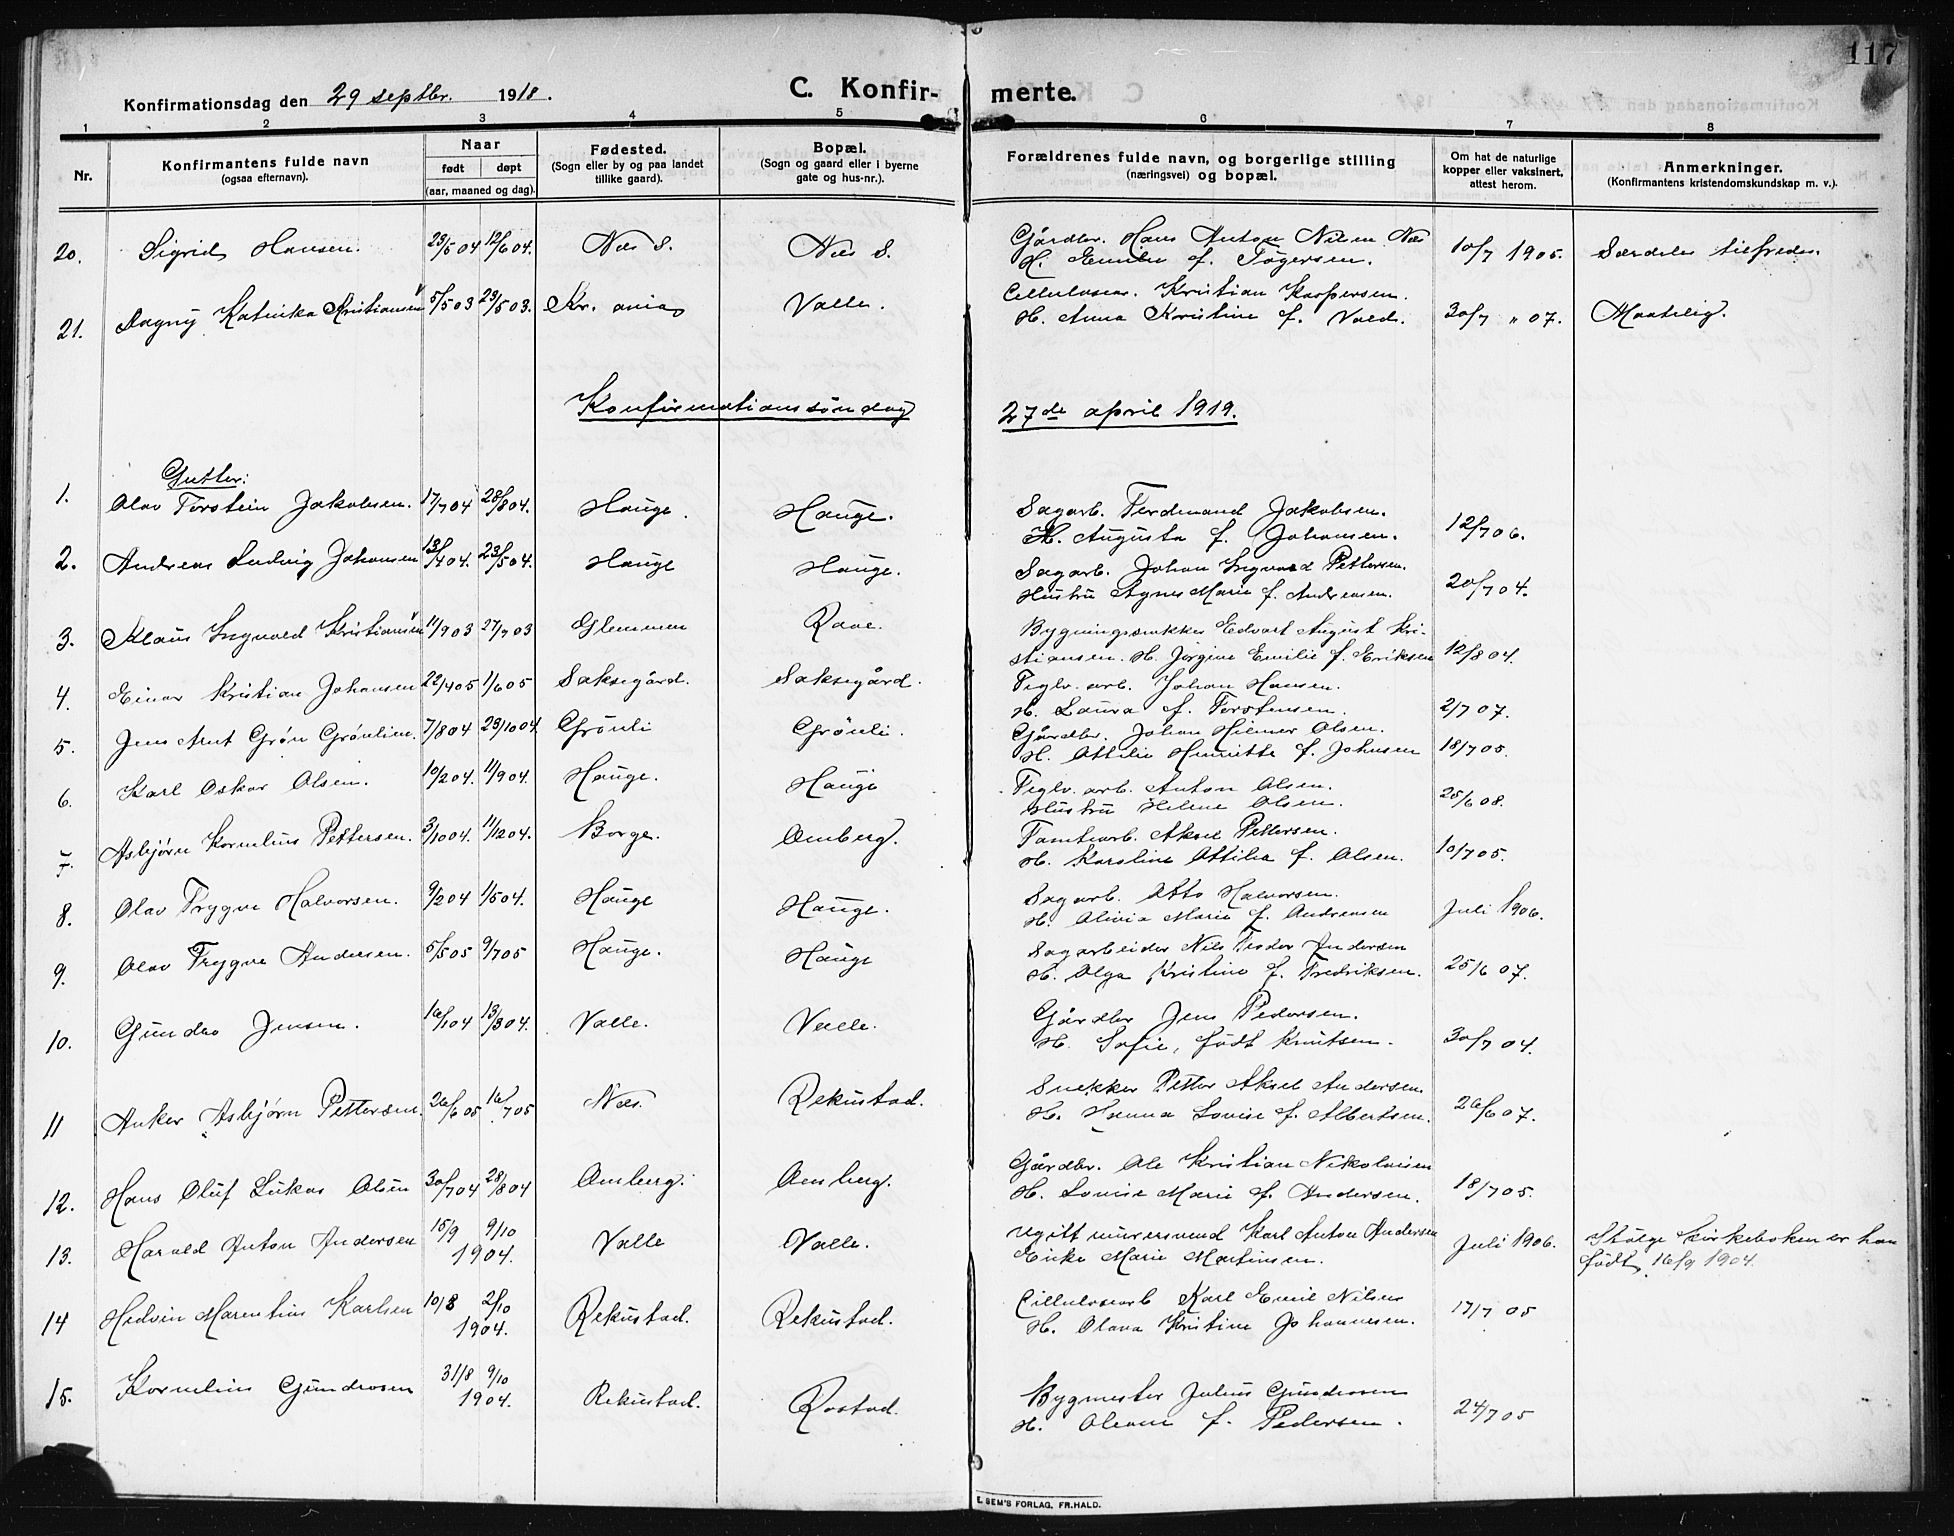 117
Konfirmationsdag den 29 septbr. 1918.
C. Konfirmerte.
1 2 3 4 5 6 7 8
Nr.
Konfirmantens fulde navn
(ogsaa efternavn).
Naar
født døpt
(aar, maaned og dag).
Fødested.
(Sogn eller by og paa landet
tillike gaard).
Bopæl.
(Sogn og gaard eller i byerne
gate og hus-nr.).
Forældrenes fulde navn, og borgerlige stilling
(næringsvei) og bopæl.
Om hat de naturlige
kopper eller vaksinert,
attest herom.
Anmerkninger.
(Konfirmantens kristendomskundskap m. v.).
20. Sigrid Hansen. 23/5 04 12/6 04. Næs S. Næs S. Gårdbr. Hans Anton Nilsen Næs
H. Emilie f. Tøgersen. 10/7 1905. Særdeles tilfreds.
21. Dagny Katinka Kristiansen 5/5 03 29/5 03. Kr. ania Valle. Cellulosear. Kristian Kaspersen.
H. Anna Kristine f. Vald. 30/7 " 07. Maatelig.
Konfirmationssöndag 27de april 1919.
Gutter:
1. Olav Torstein Jakobsen. 17/7 04 28/8 04. Hauge. Hauge. Sagarb. Ferdinand Jakobsen.
H. Augusta f. Johansen. 12/7 06.
2. Andreas Ludvig Johansen 13/4 04. 23/5 04. Hauge Hauge. Sagarb. Johan Ingvard Pettersen.
Hustru Agnes Marie f. Andreasen. 20/7 04.
3. Klaus Ingvald Kristiansen 11/9 03 27/7 03 Glemmen Rööe. Bygningssnekker Edvart August Kri-
stiansen. H. Jørgine Emilie f. Eriksen 12/8 04.
4. Einar Kristian Johansen 22/4 05 1/6 05 Saksegård. Saksegård. Teglv. arb. Johan Hansen.
H. Laura f. Torstensen. 2/7 07.
5. Jens Arnt Grön Grönlien. 7/8 04 23/10 04 Grönli Grönli. Gårdbr. Johan Hilmer Olsen.
H. Attilie Henriette f. Johnsen 18/7 05.
6. Karl Oskar Olsen. 10/2 04. 11/9 04. Hauge. Hauge Teglv. arb. Anton Olsen.
Hustru Helene Olsen. 25/6 08.
7 Asbjørn Kornelius Pettersen. 3/10 04. 11/12 04. Borge. Omberg. Tomtearb. Aksel Pettersen.
H. Karoline Attilie f. Olsen. 10/7 05.
8. Olav Trygve Halvorsen. 9/2 04 1/5 04. Hauge Hauge. Sagarb. Otto Halvorsen.
H. Olivia Marie f. Andreasen Juli 1906.
9. Olav Trygve Andersen. 5/5 05 9/7 05 Hauge. Hauge Sagarbeider Nils Peder Andersen
H. Olga Kristine f. Fredriksen. 25/6 07.
10. Gundro Jensen. 16/1 04 13/3 04. Valle. Valle. Gårdbr Jens Pedersen.
H. Sofie, født Knutsen. 30/7 04.
11 Anker Asbjørn Pettersen. 26/6 05 16/7 05 Næs. Rekustad. Snekker Petter Aksel Andersen
H. Hanna Lovise f. Albertsen. 26/6 07.
12. Hans Oluf Lukas Olsen 30/7 04 28/8 04 Omberg. Omberg. Gårdbr. Ole Kristian Nikolaisen
H. Lovise Marie f. Andersen. 18/7 05.
13. Harald Anton Andersen 15/9 9/10 1904. Valle Valle. Ugift murersvend Karl Anton Andersen
Enke Marie Martinsen. Juli 1906. Ifølge kirkeboken er han
født 16/9 1904.
14 Hidvin Marentius Karlsen 10/8 2/10 1904. Rekustad. Rekustad. Cellulosearb Karl Emil Nilsen
H. Olava Kristine Johannesen. 17/7 05
15. Kornelius Gundrosen 31/8 9/10 1904. Rekustad. Rostad. Bygmester Julius Gundrosen
H. Oleane f. Pedersen. 24/7 05
E. SEM'S FORLAG, FR.HALD.